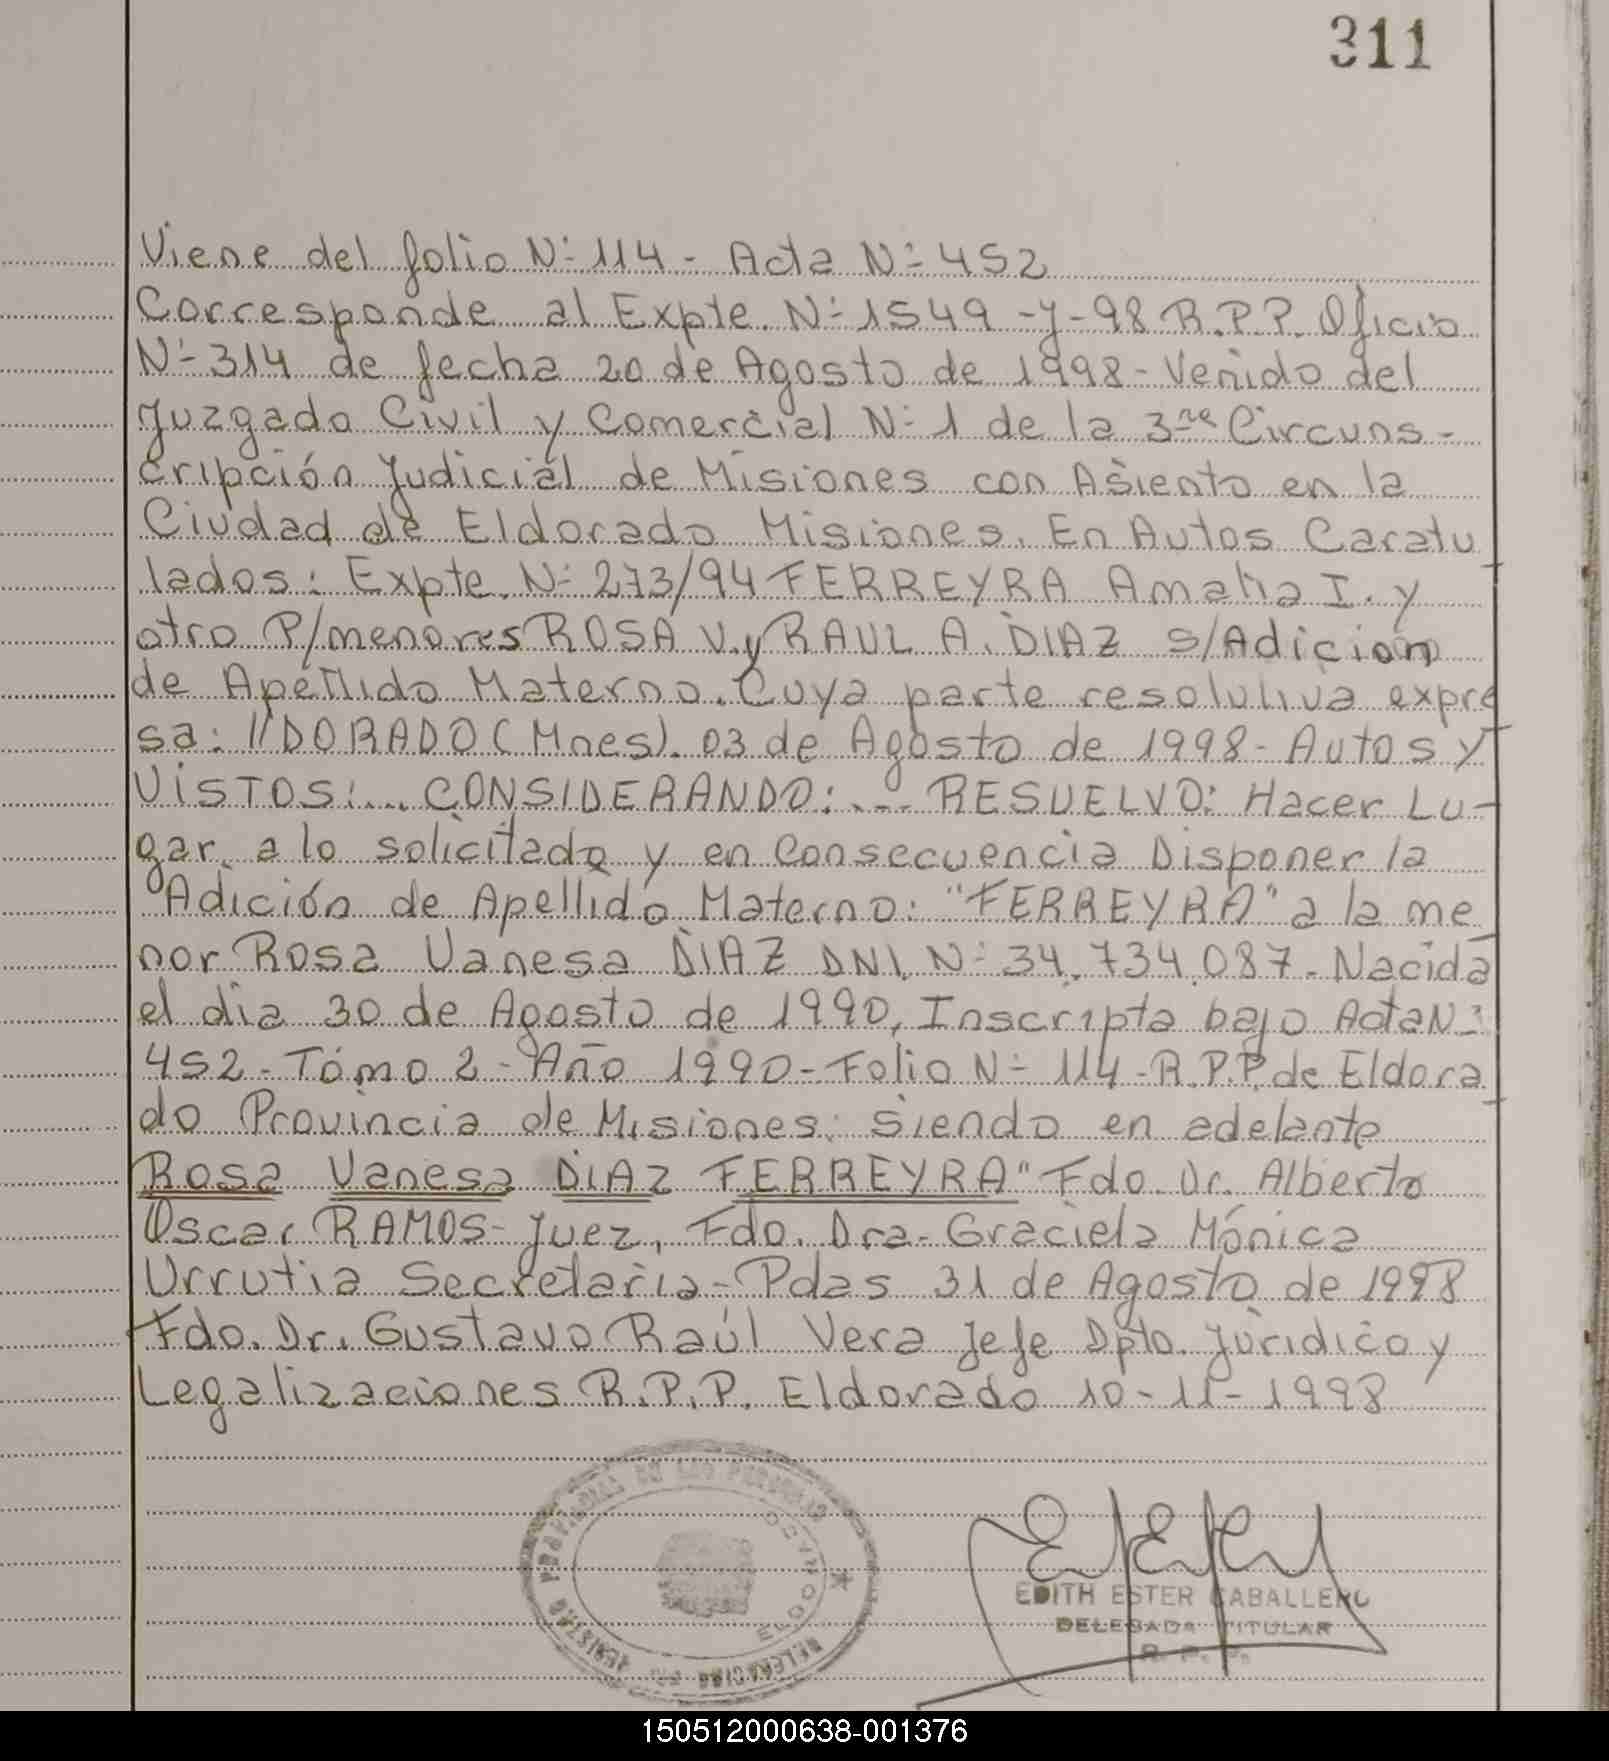 311
Viene del folio Nº 114 - Acta Nº 452
Corresponde al Expte. Nº 1549 - Y - 98 R.P.P. Oficio
Nº 314 de fecha 20 de Agosto de 1998 - Venido del
Juzgado Civil y Comercial Nº 1 de la 3ra Circuns-
cripción Judicial de Misiones con Asiento en la
Ciudad de Eldorado Misiones. En Autos Caratu
lados: Expte. Nº 273/94 FERREYRA Amalia I. y
otro P/menores ROSA V. y RAUL A. DIAZ s/Adición
de Apellido Materno. Cuya parte resolutiva expre
sa: //DORADO (Mnes). 03 de Agosto de 1998 - Autos y
VISTOS:... CONSIDERANDO:... RESUELVO: Hacer Lu-
gar a lo solicitado y en Consecuencia Disponer la
Adición de Apellido Materno: "FERREYRA" a la me
nor Rosa Vanesa DIAZ DNI. Nº 34.734.087 - Nacida
el dia 30 de Agosto de 1990, Inscripta bajo Acta Nº
452 - Tomo 2 - Año 1990 - Folio Nº 114 - R.P.P. de Eldora
do Provincia de Misiones: Siendo en adelante
Rosa Vanesa DIAZ FERREYRA" Fdo. Dr. Alberto
Oscar RAMOS - Juez, Fdo. Dra. Graciela Mónica
Urrutia Secretaria - Pdas 31 de Agosto de 1998
Fdo. Dr. Gustavo Raúl Vera Jefe Dpto. Jurídico y
Legalizaciones R.P.P. Eldorado 10-11-1998
REGISTRO PROVINCIAL DE LAS PERSONAS
DELEGACION
ELDORADO
EDITH ESTER CABALLERO
DELEGADA TITULAR
R. P. P.
150512000638-001376